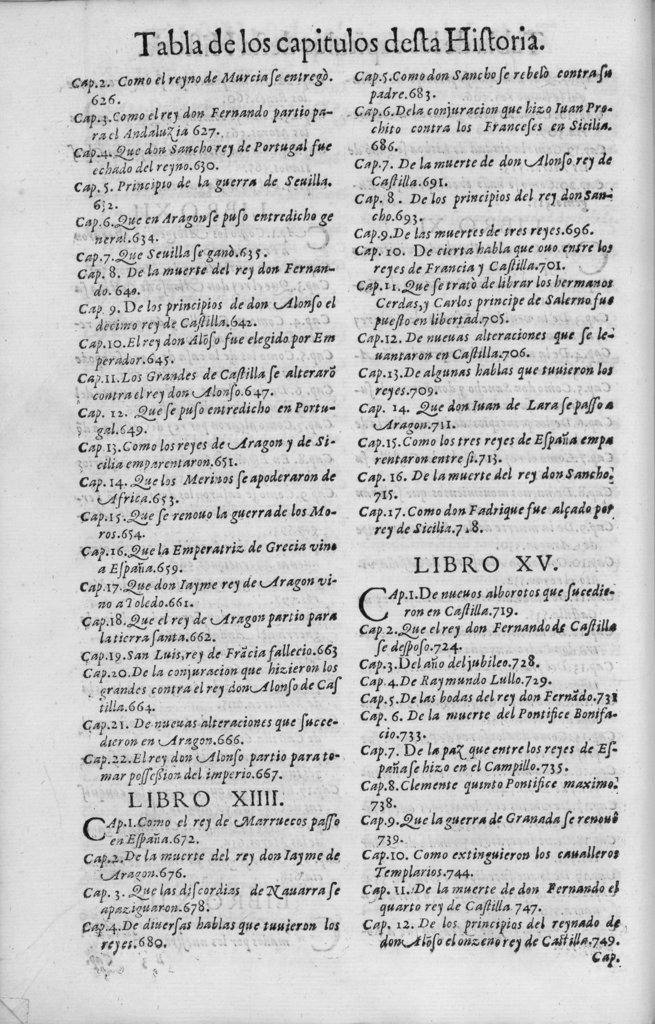 Tabla de los capitulos desta Historia.
Cap.2. Como el reyno de Murcia se entregò.
626.
Cap.3. Como el rey don Fernando partio pa-
ra el Andaluzia 627.
Cap.4. Que don Sancho rey de Portugal fue
echado del reyno.630.
Cap.5. Principio de la guerra de Sevilla.
632.
Cap.6. Que en Aragon se puso entredicho ge
neral.634.
Cap.7. Que Sevilla se ganò.635.
Cap. 8. De la muerte del rey don Fernan-
do. 640.
Cap 9. De los principios de don Alonso el
decimo rey de Castilla.642.
Cap.10. El rey don Alõso fue elegido por Em
perador.645.
Cap.11. Los Grandes de Castilla se alterarõ
contra el rey don Alonso.647.
Cap. 12. Que se puso entredicho en Portu-
gal.649.
Cap.13. Como los reyes de Aragon y de Si-
cilia emparentaron.651.
Cap.14. Que los Merinos se apoderaron de
Africa.653.
Cap.15. Que se renouo la guerra de los Mo-
ros.654.
Cap.16. Que la Emperatriz de Grecia vino
a España.659.
Cap.17. Que don Iayme rey de Aragon vi-
no a Toledo.661.
Cap.18. Que el rey de Aragon partio para
la tierra santa.662.
Cap.19. San Luis, rey de Frãcia fallecio.663
Cap.20. De la conjuracion que hizieron los
grandes contra el rey don Alonso de Cas
tilla.664.
Cap.21. De nuevas alteraciones que succe-
dieron en Aragon.666.
Cap.22. El rey don Alonso partio para to-
mar possession del imperio.667.
LIBRO XIIII.
CAp.1. Como el rey de Marruecos passo
en España.672.
Cap.2. De la muerte del rey don Iayme de
Aragon.676.
Cap. 3. Que las discordias de Nauarra se
apaziguaron.678.
Cap.4. De diversas hablas que tuvieron los
reyes.680.
Cap.5. Como don Sancho se rebelò contra su
padre.683.
Cap.6. De la conjuracion que hizo Iuan Pro
chito contra los Franceses en Sicilia.
686.
Cap.7. De la muerte de don Alonso rey de
Castilla.691.
Cap. 8. De los principios del rey don San-
cho.693.
Cap.9. De las muertes de tres reyes.696.
Cap. 10. De cierta habla que ouo entre los
reyes de Francia y Castilla.701.
Cap.11. Que se tratò de librar los hermanos
Cerdas, y Carlos principe de Salerno fue
puesto en libertad.705.
Cap.12. De nuevas alteraciones que se le-
uantaron en Castilla.706.
Cap.13. De algunas hablas que tuuieron los
reyes.709.
Cap. 14. Que don Iuan de Lara se passò a
Aragon.711.
Cap.15. Como los tres reyes de España empa
rentaron entre si.713.
Cap. 16. De la muerte del rey don Sancho.
715.
Cap.17. Como don Fadrique fue alçado por
rey de Sicilia.
LIBRO XV.
CAp.1. De nuevos alborotos que sucedie-
ron en Castilla.719.
Cap.2. Que el rey don Fernando de Castilla
se desposo.724.
Cap.3. Del año del jubileo.728.
Cap.4. De Raymundo Lullo.729.
Cap.5. De las bodas del rey don Fernãdo.731
Cap. 6. De la muerte del Pontifice Bonifa-
cio.733.
Cap.7. De la paz que entre los reyes de Es-
paña se hizo en el Campillo.735.
Cap.8. Clemente quinto Pontifice maximo.
738.
Cap.9. Que la guerra de Granada se renouò
739.
Cap.10. Como extinguieron los caualleros
Templarios.744.
Cap. 11. De la muerte de don Fernando el
quarto rey de Castilla. 747.
Cap. 12. De los principios del reynado de
don Alõso el onzeno rey de Castilla.749.
Cap.